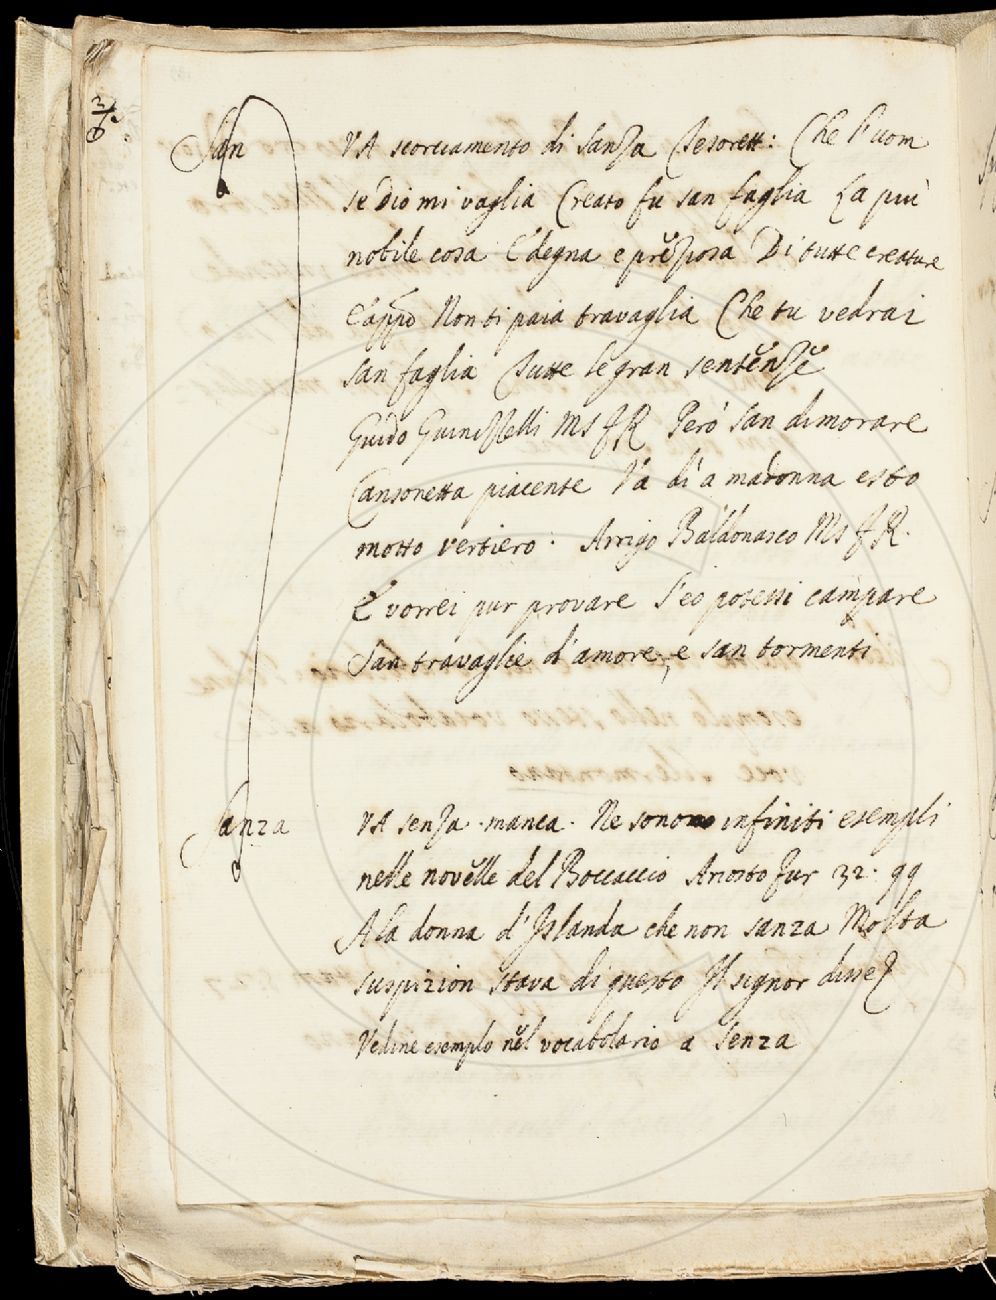 San VA scorciamento di Sanza Tesorett: Che l'uom
se Dio mi vaglia Creato fu san faglia La più
nobile cosa E degna e preziosa Di tutte creature
E appo Non ti paia travaglia Che tu vedrai
san faglia Tutte le gran sentenze
Guido Guinizelli MS FR Però san dimorare
Cansonetta piacente Và dì a madonna esto
motto vertiero: Arrigo Baldonasco MS FR.
E vorrei pur provare S'eo potessi campare
San travaglie di amore, e san tormenti
Sanza VA senza manca. Ne sono infiniti esempli
nelle novelle del Boccaccio Ariosto Fur 32. 99
A la donna d'Islanda che non sanza Molta
suspizion stava di questo Il signor disse
Vedine esemplo nel vocabolario a Senza